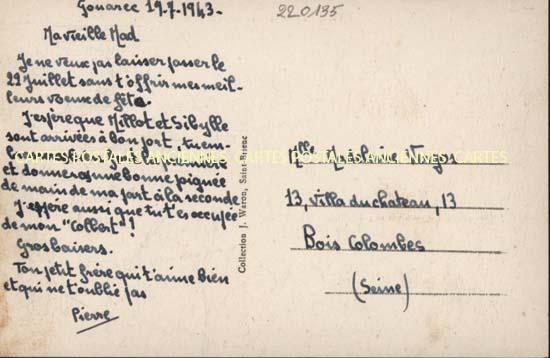 Gouarec 19.7.1943.
220135
Ma vieille Mad
Je ne veux pas laisser passer le
22 Juillet sans t'offrir mes meil-
leurs voeux de fête.
J'espère que Millot et Sibylle
sont arrivées à bon port, tu em-
CARTES POSTALES ANCIENNES CARTES POSTALES ANCIENNES CARTES
et donneras une bonne poignée
de main de ma part à la seconde.
J'espère aussi que tu t'es occupée
de mon "Colbert"!
Gros baisers.
Ton petit frère qui t'aime bien
et qui ne t'oublie pas
Pierre
Collection J. Waron, Saint-Brieuc
Mlle
13, villa du chateau, 13
Bois Colombes
(Seine)